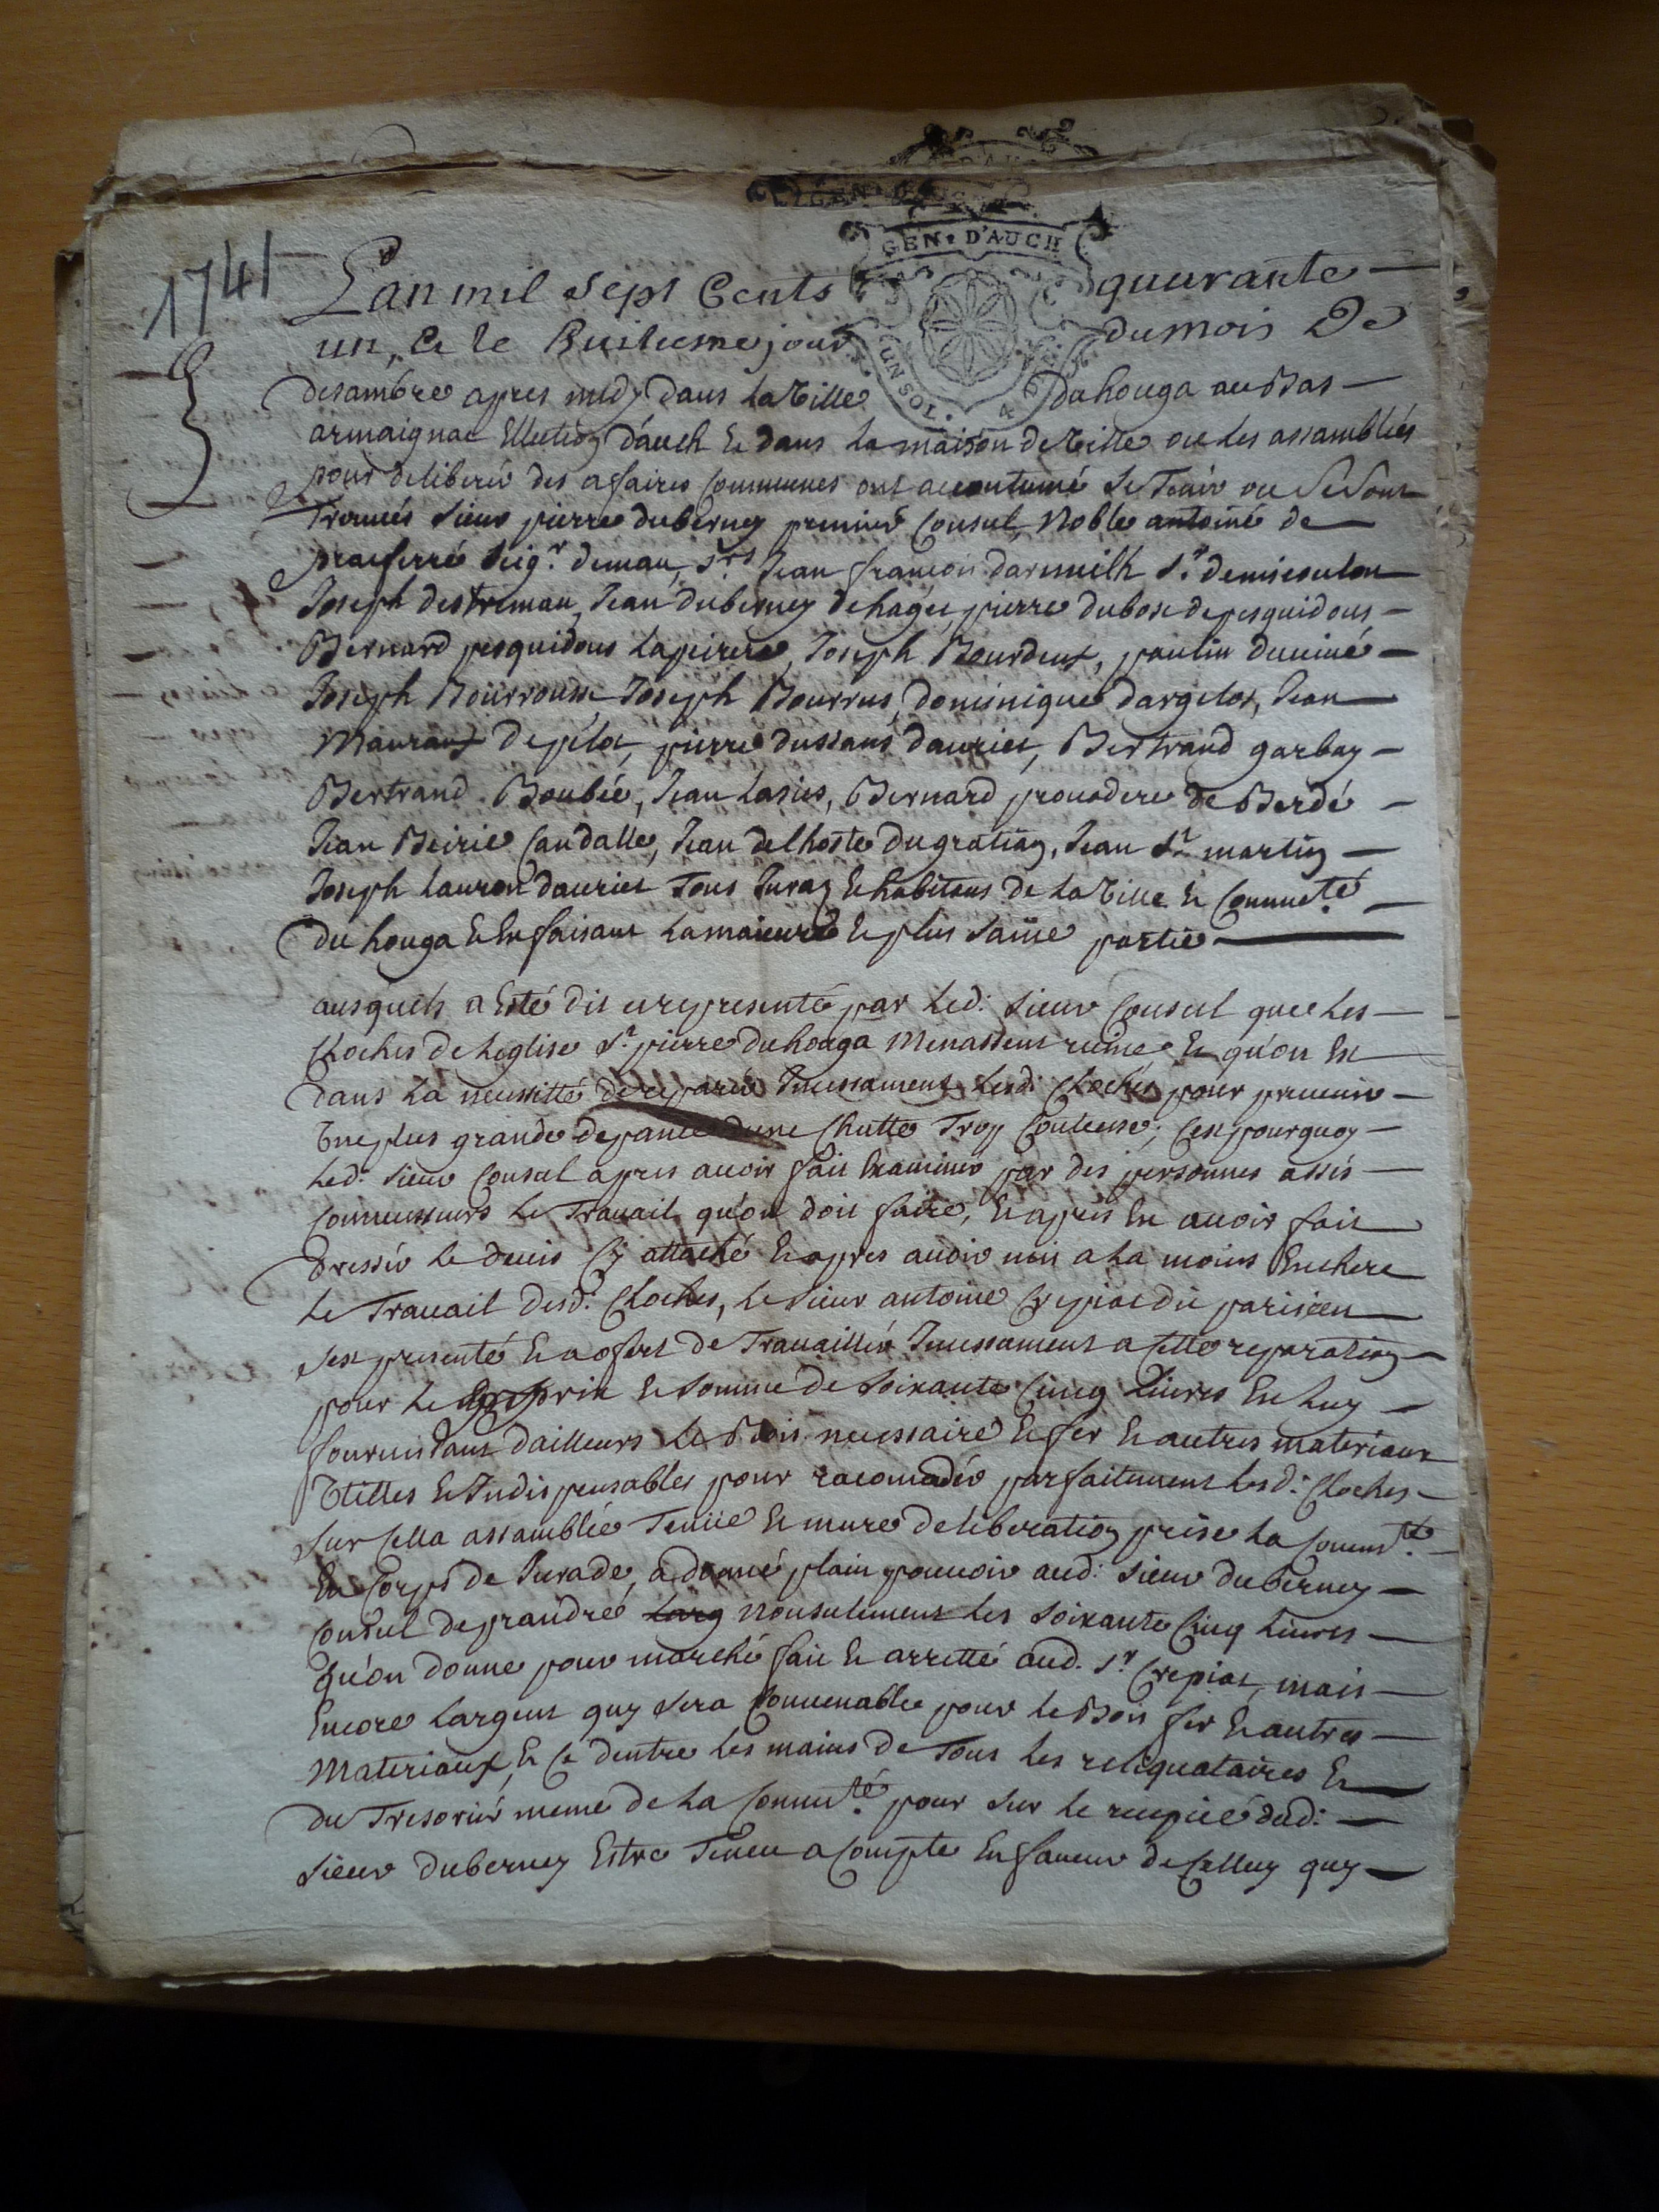 GEN. D'AUCH
1741
Lan mil sept Cents quarante
un, & le huitiesme jour du mois De
desambre apres midy dans la Ville du houga au Bas
UN SOL. 4 D
armaignac Ellection d'auch & dans la maison de Ville ou les assamblées
pour deliberer des afaires Communes ont accoutumé se Tenir ou se sont
Trouvés sieur pierre duberney premier Consul, Noble antoine de
seigr. deman, srs Jean francois darmeilh sr.
Joseph destreman, Jean duberney de hages, pierre dubosc de pesquidous
Bernard pesquidous lapeirere, Joseph Bourdens, paulin
Joseph Bourrousse Joseph Bourrus, dominique dargelos, Jean
Mauran de plot, pierre dussans dauriet, Bertrand garbay
Bertrand Boubée, Jean lasies, Bernard prouadere de Berdé
Jean Beirie Candalle, Jean delhoste du gratian, Jean St martin
Joseph lauron dauriet Tous Jurats & habitans de la Ville & Commuté.
du houga & En faisant la majeure & plus saine partie
ausquels a Esté dit et representé par led. sieur Consul que les
Cloches de leglise St. pierre du houga Menassent ruine & qu'on Est
dans la necessitté de reparer Incessament lesd. Cloches pour prevenir
Une plus grande depance dune Chutte Trop Couteuse; Cest pourquoy
led. sieur Consul apres avoir fait Examiner par des personnes assés
Connesseurs le Travail qu'on doit faire, & apres En avoir fait
dresser le devis Cy attaché & apres avoir mis a la moins Enchere
le Travail desd. Cloches, le sieur antoine Crepiac dit parisien
sest presenté & a ofert de Travailler Incessament a Cette reparation
pour le prix & somme de soixante Cinq Livres En luy
fournissant dailleurs le Bois necessaire & fer & autres materiaux
Utilles & Indispensables pour racomoder parfaitement lesd. Cloches
sur Cella assamblée Tenüe & mure deliberation prise la Commté.
En Corps de Jurade, a donné plain pouvoir aud. sieur duberney
Consul de prandre nonsulement les soixante Cinq livres
qu'on donne pour marché fait & arretté aud. sr. Crepiac, mais
Encore largent quy sera Convenable pour le Bois fer & autres
Materiaux, & Ce dentre les mains de Tous les reliquataires &
du Tresorier meme de la Commuté. pour sur le recepicé dud.
sieur duberney Estre Tenu a Compte En faveur de Celluy quy